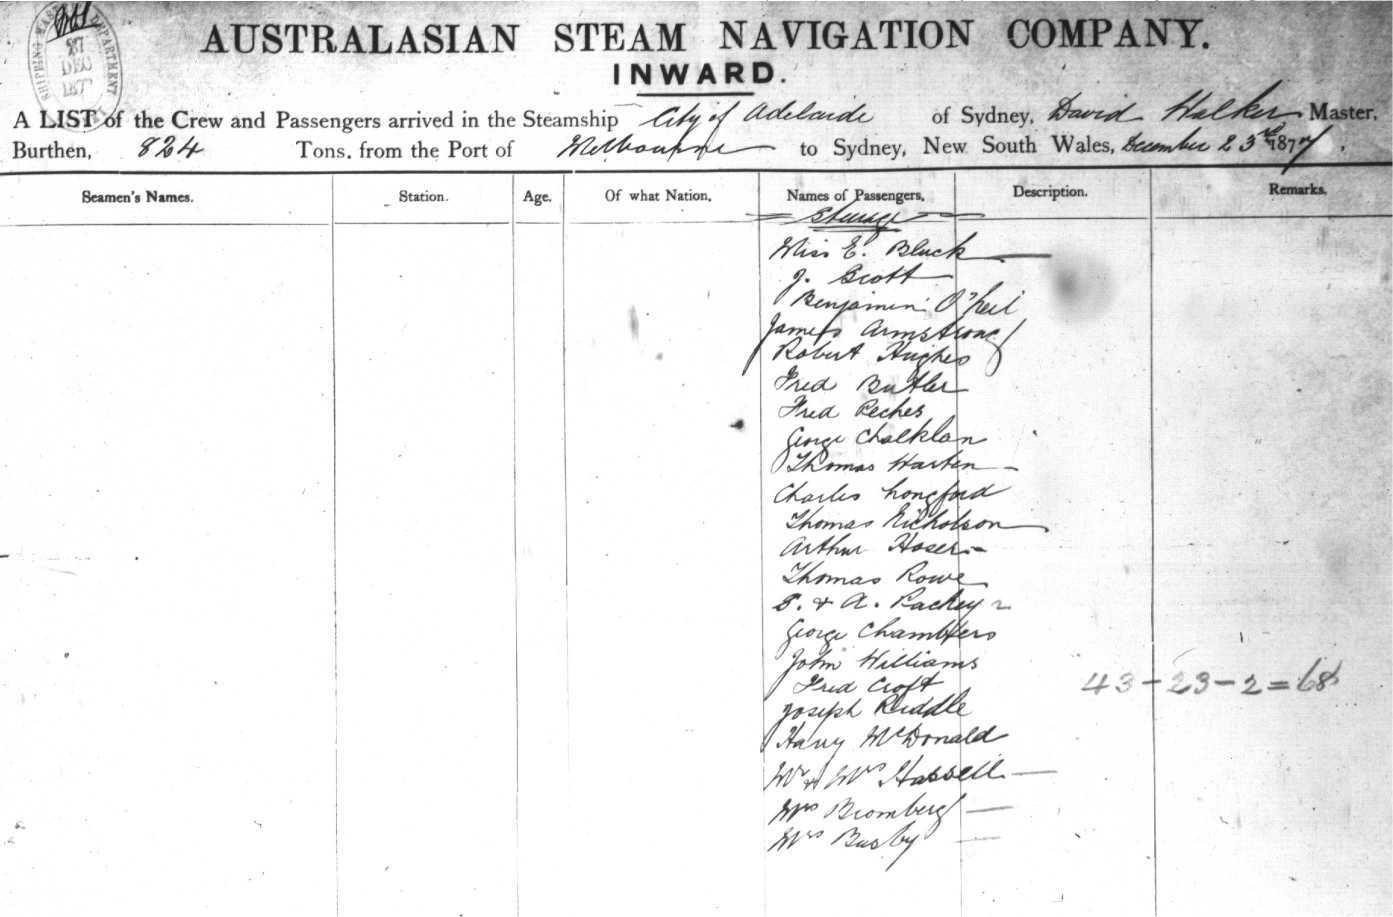 SHIPPING MASTER'S DEPARTMENT
27
DEC
187
AUSTRALASIAN STEAM NAVIGATION COMPANY.
INWARD.
A LIST of the Crew and Passengers arrived in the Steamship City of Adelaide of Sydney, David Walker Master,
Burthen, 824 Tons. from the Port of Melbourne to Sydney, New South Wales, December 23rd 1877.
Seamen's Names. Station. Age. Of what Nation. Names of Passengers. Description. Remarks.
Steerage
Miss E. Black
J. Scott
Benjamin O'Neil
James Armstrong
Robert Hughes
Fred Butler
Fred Peches
George Chalklan
Thomas Harten
Charles Longford
Thomas Nicholson
Arthur Hoser
Thomas Rowe
& A. Packey 2
George Chambers
John Williams
Fred Croft
43-23-2=68
Joseph Riddle
Harry McDonald
Mr & Mrs Hassell
Mrs Bromberg
Mrs Busby